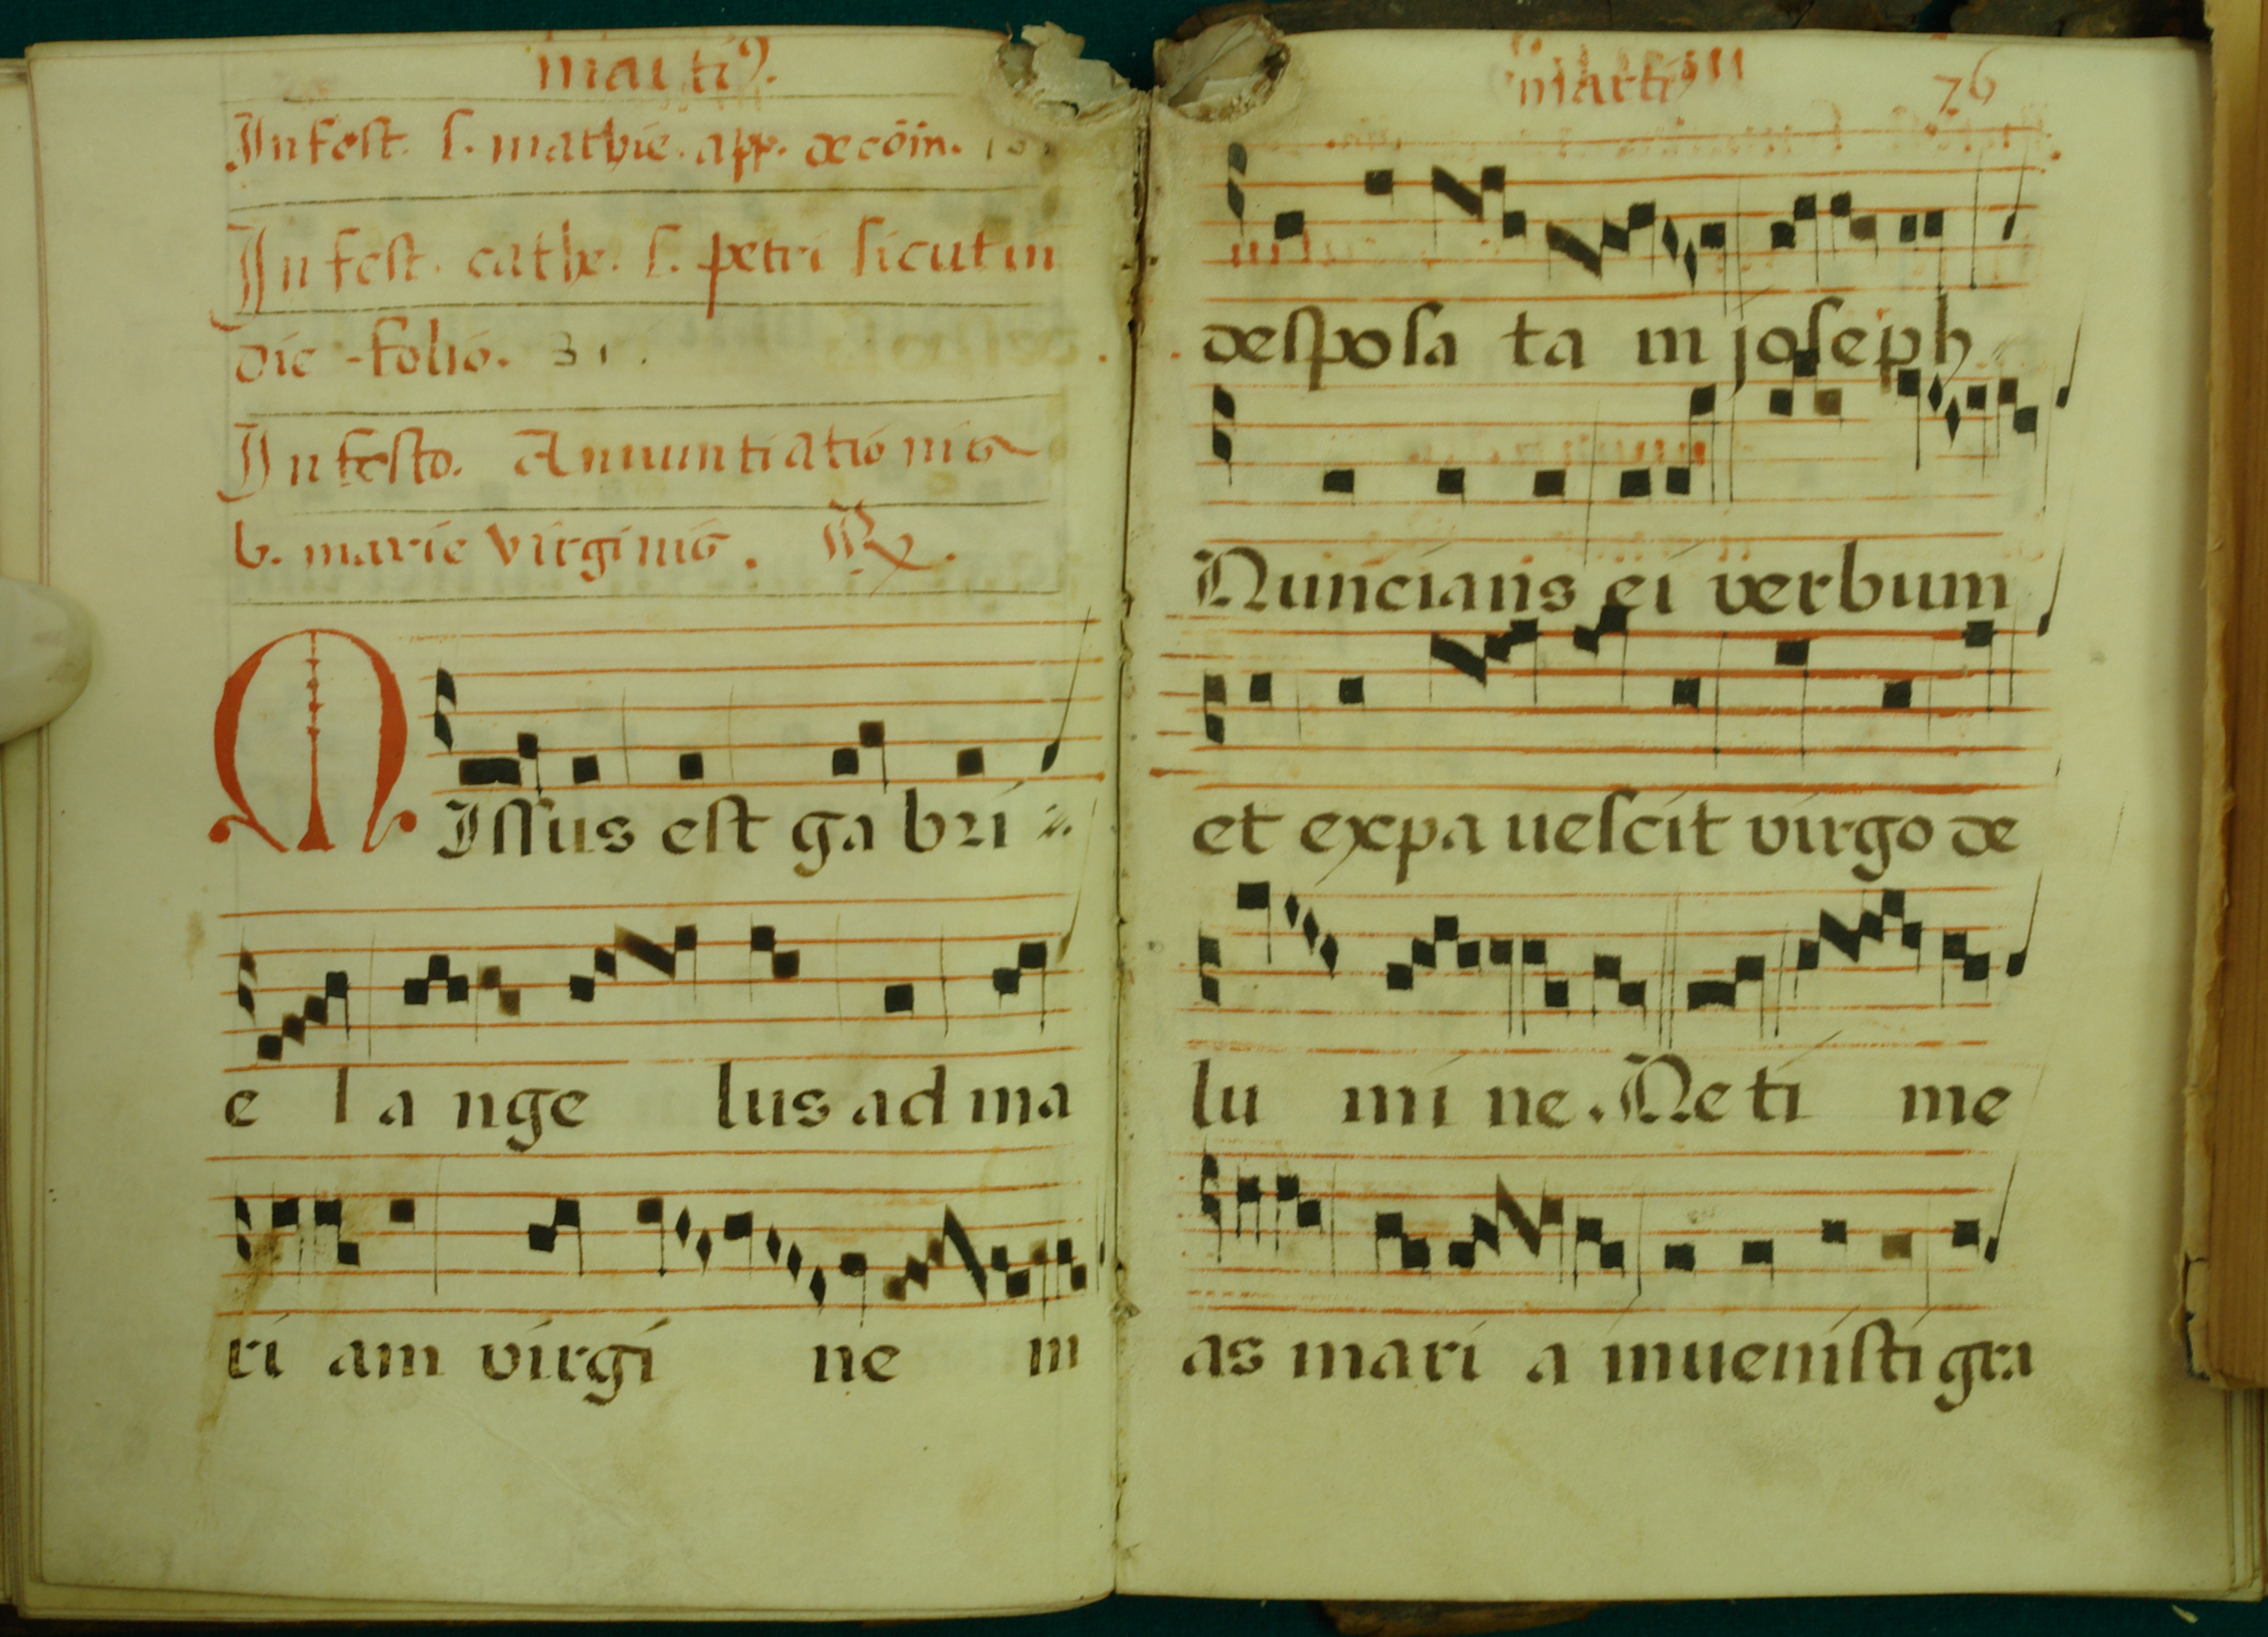 martiꝰ.
In fest. s. mathie. app. de cōin.
In fest. cathe. s. petri sicut in
die -folio. 31.
In festo. Annuntiationis
b. marie virginis. ℟.
MIssus est ga bri
e l a nge lus ad ma
ri am virgi ne m
martiꝰ 76
desposa ta m joseph
Nuncians ei verbum
et expa uescit virgo de
lu mi ne. Ne ti me
as mari a inuenisti gra